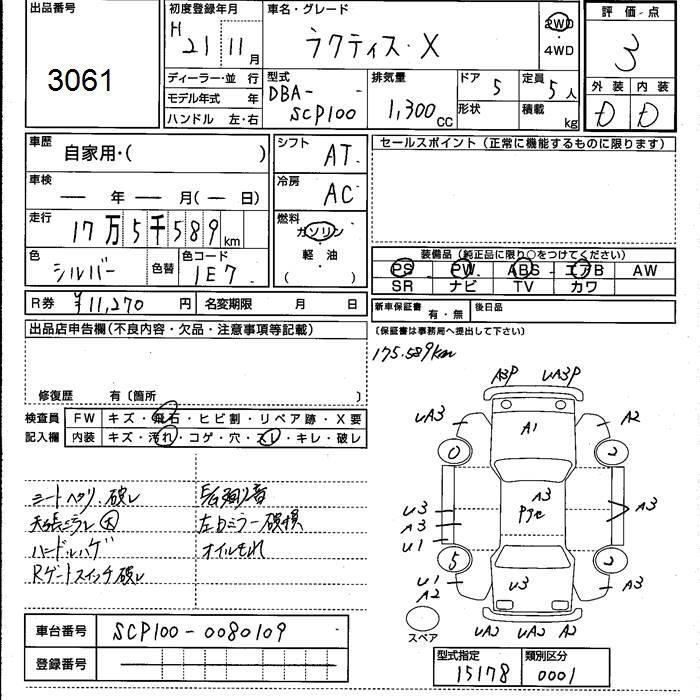 出品番号
3061
初度登録年月
H 21 11月
車名・グレード
ラクティス・X
2WD
・
4WD
評価点
3
ディーラー・並行
モデル年式 年
ハンドル 左・右
型式
DBA-
SCP100
排気量
1,300cc
ドア 5
形状
定員 5人
積載 kg
外装 内装
D D
車歴
自家用・( )
車検
― 年 ― 月(― 日)
走行
17万5千589km
色
シルバー
色替
色コード
1E7
シフト
AT
冷房
AC
燃料
ガソリン
・
軽・油
( )
セールスポイント(正常に機能するものに限ります)
装備品(純正品に限り○をつけてください)
PS PW ABS エアB AW
SR ナビ TV カワ
R券 ¥11,270円
名変期限 月 日
新車保証書 有・無
後日品
〔保証書は事務局へ提出して下さい〕
出品店申告欄(不良内容・欠品・注意事項等記載)
修復歴 有〔箇所 〕
175.589km
検査員
記入欄
FW キズ・飛石・ヒビ割・リペア跡・X要
内装 キズ・汚れ・コゲ・穴・スレ・キレ・破レ
シートヘタリ・破レ
ハンドルハゲ
Rゲートスイッチ破レ
左Dミラー破損
オイルもれ
A3P UA3P
UA3 A2
A1
0 2
A3
U3
A3
U1
A3
5 2
U1
A2
U3
A3
UA2 UA2 A2
スペア
車台番号 SCP100-0080109
登録番号
型式指定 15178
類別区分 0001